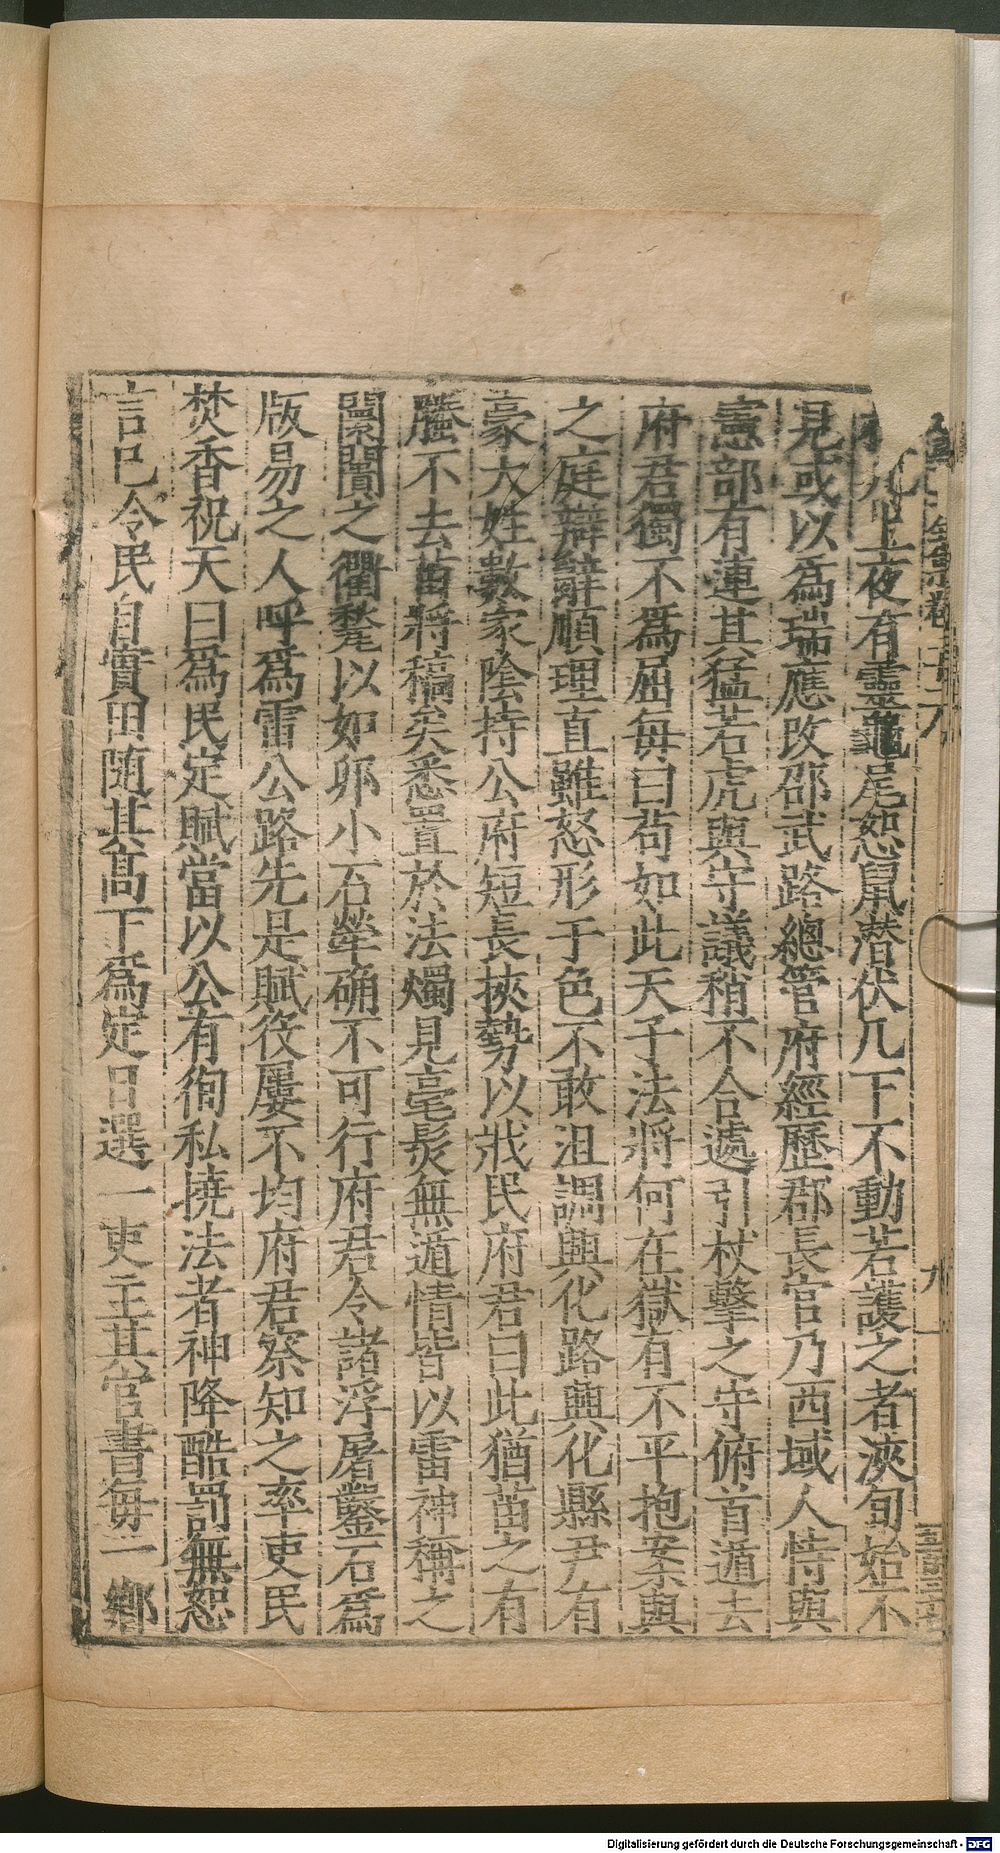 夜有靈龜尾恕鼠潜伏几下不動若護之者浹旬始不
見或以爲瑞應改邵武路總管府經歷郡長官乃西域人恃與
憲部有連其猛若虎與守議稍不合遽引杖擊之守俯首遁去
府君獨不爲屈每曰苟如此天子法將何在獄有不平抱案與
之庭辯辭順理直雖怒形于色不敢沮調興化路興化縣尹有
豪大姓數家陰持公府短長挾勢以戕民府君曰此猶苗之有
螣不去苗將稿矣悉置於法燭見毫髮無遁情皆以雷神稱之
闤闠之衢甃以如卵小石犖确不可行府君令諸浮屠鑿石爲
版易之人呼爲雷公路先是賦役屢不均府君察知之率吏民
焚香祝天曰爲民定賦當以公有徇私撓法者神降酷罰無恕
言已令民自實田随其高下爲定日選一吏主其官書每一鄉
卷二十六
九
Digitalisierung gefördert durch die Deutsche Forschungsgemeinschaft - DFG